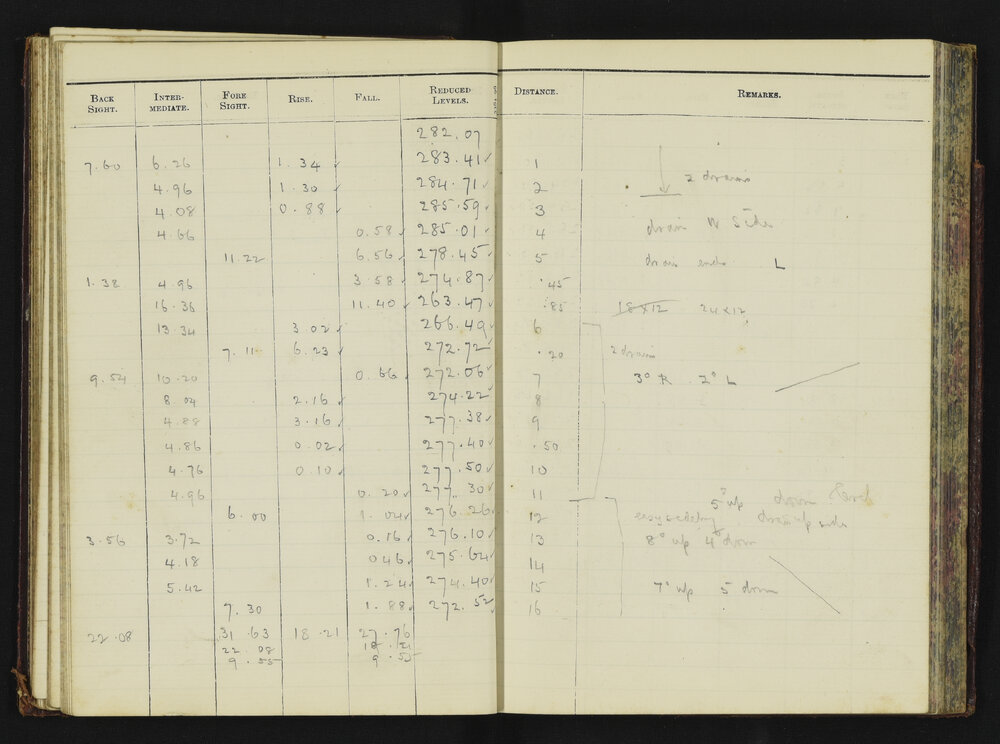 BACK SIGHT. INTER-MEDIATE. FORE SIGHT. RISE. FALL. REDUCED LEVELS. DISTANCE. REMARKS.
282.07
7.60 6.26 1.34 283.41 1
4.96 1.30 284.71 2 2 drains
4.08 0.88 285.59 3
4.66 0.58 285.01 4 drain W side
11.22 6.56 278.45 5 drain ends L
1.38 4.96 3.58 274.87 .45
16.36 11.40 263.47 .85 18x12 24x12
13.34 3.02 266.49 6
7.11 6.23 272.72 .20 2 drains
9.54 10.20 0.66 272.06 7 3° R 2° L
8.04 2.16 274.22 8
4.88 3.16 277.38 9
4.86 0.02 277.40 .50
4.76 0.10 277.50 10
4.96 0.20 277.30 11 5° up down
6.00 1.04 276.26 12 side
3.56 3.72 0.16 276.10 13 8° up 4° down
4.18 0.46 275.64 14
5.42 1.24 274.40 15 7° up 5 down
7.30 1.88 272.52 16
22.08 31.63 18.21 27.76
22.08 18.21
9.55 9.55